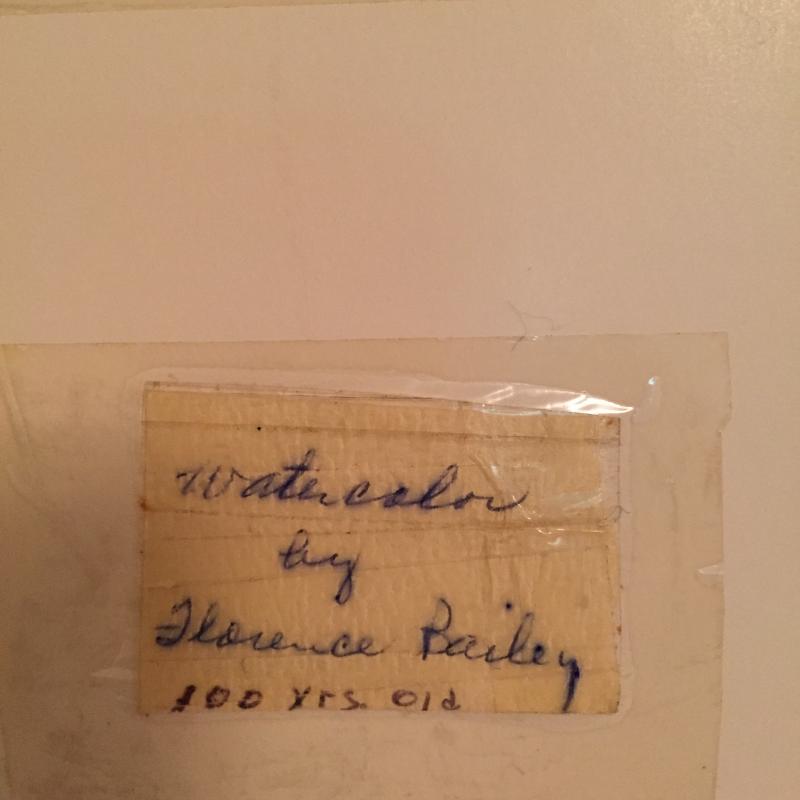 Watercolor
by
Florence Bailey
100 yrs. old